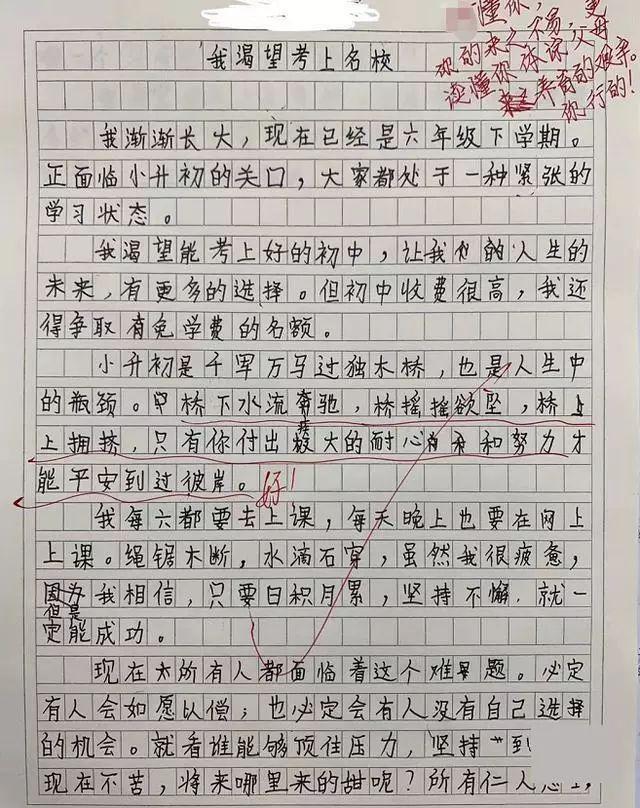 懂你,更
你的来之不易。
读懂你体谅父母
养育的艰辛。
你行的!
我渴望考上名校
我渐渐长大,现在已经是六年级下学期。
正面临小升初的关口,大家都处于一种紧张的
学习状态。
我渴望能考上好的初中,让我的人生的
未来,有更多的选择。但初中收费很高,我还
得争取有免学费的名额。
小升初是千军万马过独木桥,也是人生中
的瓶颈。桥下水流奔驰,桥摇摇欲坠,桥上
上拥挤,只有你付出极大的耐心和努力才
能平安到过彼岸。好!
我每六都要去上课,每天晚上也要在网上
上课。绳锯木断,水滴石穿,虽然我很疲惫,
但是我相信,只要日积月累,坚持不懈,就一
定能成功。
现在所有人都面临着这个难题。必定
有人会如愿以偿;也必定会有人没有自己选择
的机会。就看谁能够顶住压力,坚持到
现在不苦,将来哪里来的甜呢?所有仁人志士,